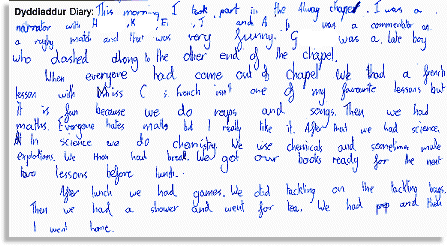 Dyddiadur Diary: This morning I took part in the Alway chapel. I was a
narrator with H, K, E, J and A. H was a commentator on
a rugby match and that was very funny. G was a late boy
who dashed along to the other end of the chapel.
When everyone had come out of chapel we had a french
lesson with Miss C. French isn't one of my favourite lessons but
it is fun because we do raps and songs. Then we had
maths. Everyone hates maths but I really like it. After that we had science.
In science we do chemistry. We use chemicals and sometimes make
explotions. We then had break. We got our books ready for the next
two lessons before lunch.
After lunch we had games. We did tackling on the tackling bags.
Then we had a shower and went for tea. We had prep and then
I went home.